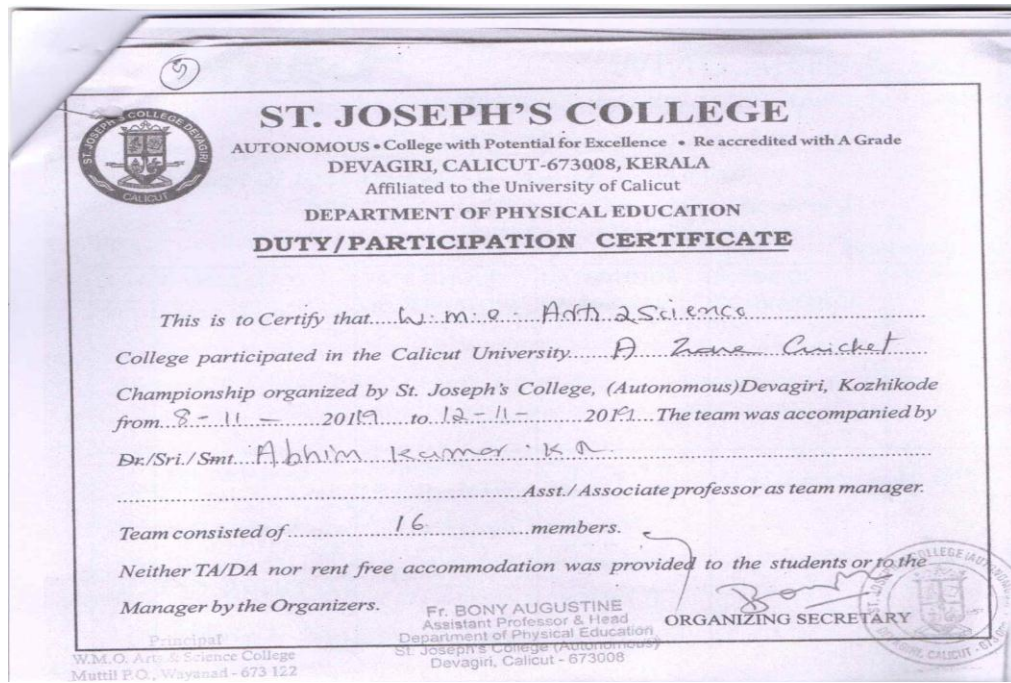 5
ST. JOSEPH'S COLLEGE DEVAGIRI
CALICUT
ST. JOSEPH'S COLLEGE
AUTONOMOUS • College with Potential for Excellence • Re accredited with A Grade
DEVAGIRI, CALICUT-673008, KERALA
Affiliated to the University of Calicut
DEPARTMENT OF PHYSICAL EDUCATION
DUTY/PARTICIPATION CERTIFICATE
This is to Certify that W.m.o. Arts & Science
College participated in the Calicut University A Zone Cricket
Championship organized by St. Joseph's College, (Autonomous)Devagiri, Kozhikode
from 8-11- 2019 to 12-11- 2019 The team was accompanied by
Dr./Sri./Smt. Abhim Kumar K A
Asst./ Associate professor as team manager.
Team consisted of 16 members.
Neither TA/DA nor rent free accommodation was provided to the students or to the
Manager by the Organizers.
Fr. BONY AUGUSTINE
Assistant Professor & Head
Department of Physical Education
St. Joseph's College (Autonomous)
Devagiri, Calicut - 673008
Bony
ORGANIZING SECRETARY
Principal
W.M.O. Arts & Science College
Muttil P.O., Wayanad - 673 122